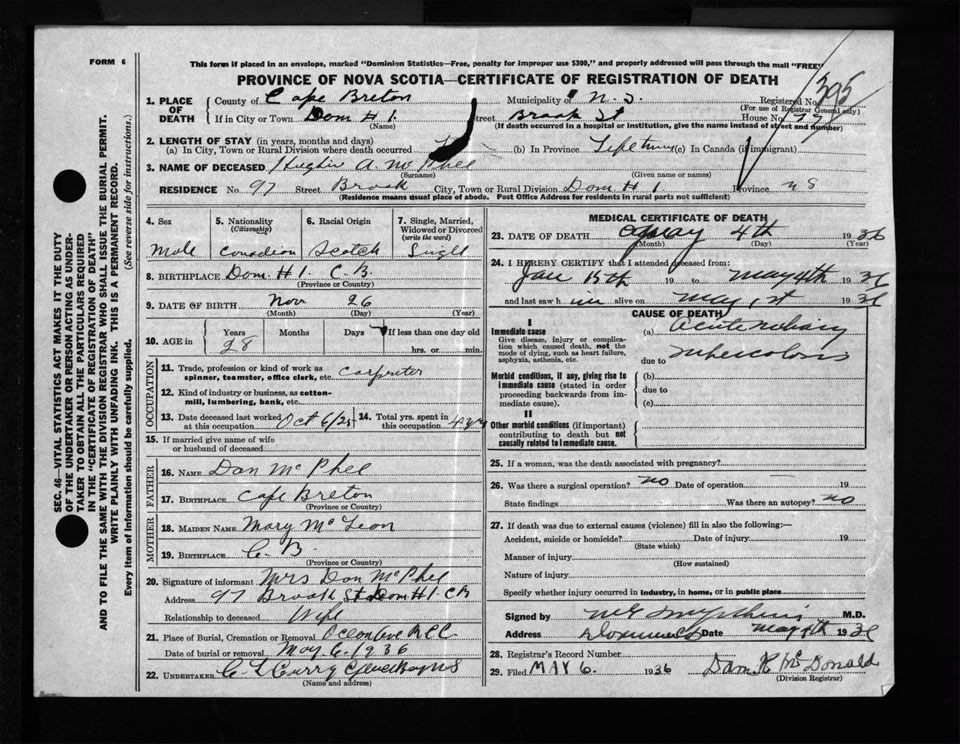 FORM 6
This form if placed in an envelope, marked "Dominion Statistics—Free, penalty for improper use $300," and properly addressed will pass through the mail "FREE"
PROVINCE OF NOVA SCOTIA—CERTIFICATE OF REGISTRATION OF DEATH
SEC. 46—VITAL STATISTICS ACT MAKES IT THE DUTY
OF THE UNDERTAKER OR PERSON ACTING AS UNDER-
TAKER TO OBTAIN ALL THE PARTICULARS REQUIRED
IN THE "CERTIFICATE OF REGISTRATION OF DEATH"
AND TO FILE THE SAME WITH THE DIVISION REGISTRAR WHO SHALL ISSUE THE BURIAL PERMIT.
WRITE PLAINLY WITH UNFADING INK. THIS IS A PERMANENT RECORD.
Every item of Information should be carefully supplied. (See reverse side for instructions.)
1. PLACE OF DEATH
County of Cape Breton Municipality of N.S. Registered No. 395
(For use of Registrar General only)
If in City or Town Dom # 1. Street Brook St House No. 77
(Name) (If death occurred in a hospital or institution, give the name instead of street and number)
2. LENGTH OF STAY (in years, months and days)
(a) In City, Town or Rural Division where death occurred (b) In Province Life time (c) In Canada (if immigrant)
3. NAME OF DECEASED Hughie A. Mc Phee
(Surname) (Given name or names)
RESIDENCE No. 97 Street Brook City, Town or Rural Division Dom # 1. Province N S
(Residence means usual place of abode. Post Office Address for residents in rural parts not sufficient)
4. Sex Male
5. Nationality (Citizenship) Canadian
6. Racial Origin Scotch
7. Single, Married, Widowed or Divorced (write the word) Single
8. BIRTHPLACE Dom. # 1. C. B.
(Province or Country)
9. DATE OF BIRTH Nov 26
(Month) (Day) (Year)
10. AGE in Years Months Days If less than one day old
28 hrs. or min.
OCCUPATION
11. Trade, profession or kind of work as spinner, teamster, office clerk, etc. Carpenter
12. Kind of industry or business, as cotton-mill, lumbering, bank, etc.
13. Date deceased last worked at this occupation Oct 6/25
14. Total yrs. spent in this occupation 4 yrs
15. If married give name of wife or husband of deceased
FATHER
16. NAME Dan Mc Phee
17. BIRTHPLACE Cape Breton
(Province or Country)
MOTHER
18. MAIDEN NAME Mary Mc Leon
19. BIRTHPLACE C. B.
(Province or Country)
20. Signature of informant Mrs Dan McPhee
Address 97 Brook St Dom # 1. C B
Relationship to deceased Wife
21. Place of Burial, Cremation or Removal Ocean Ave R C C
Date of burial or removal May 6. 1936
22. UNDERTAKER C L Curry
(Name and address)
MEDICAL CERTIFICATE OF DEATH
23. DATE OF DEATH May 4th 1936
(Month) (Day) (Year)
24. I HEREBY CERTIFY that I attended deceased from:
Jan 15th 19 to May 4th 1936
and last saw h im alive on May 1st 1936
CAUSE OF DEATH
I
Immediate cause (a) Acute miliary
Give disease, injury or complication which caused death, not the mode of dying, such as heart failure, asphyxia, asthenia, etc.
due to tuberculosis
Morbid conditions, if any, giving rise to immediate cause (stated in order proceeding backwards from immediate cause).
(b)
due to
(c)
II
Other morbid conditions (if important) contributing to death but not causally related to immediate cause.
25. If a woman, was the death associated with pregnancy?
26. Was there a surgical operation? no Date of operation 19
State findings Was there an autopsy? no
27. If death was due to external causes (violence) fill in also the following:—
Accident, suicide or homicide? Date of injury 19
(State which)
Manner of injury
(How sustained)
Nature of injury
Specify whether injury occurred in industry, in home, or in public place
Signed by M.D.
Address Date May 4th 1936
28. Registrar's Record Number
29. Filed MAY 6. 1936 Dan. R McDonald
(Division Registrar)